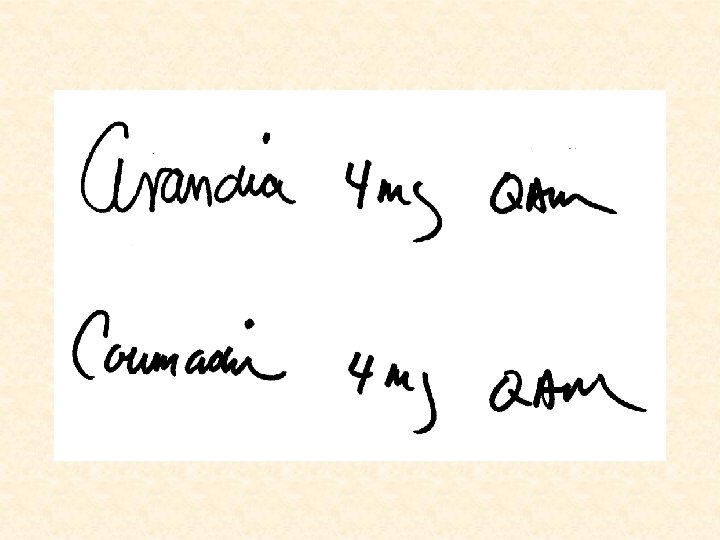 Avandia 4mg QAM
Coumadin 4mg QAM